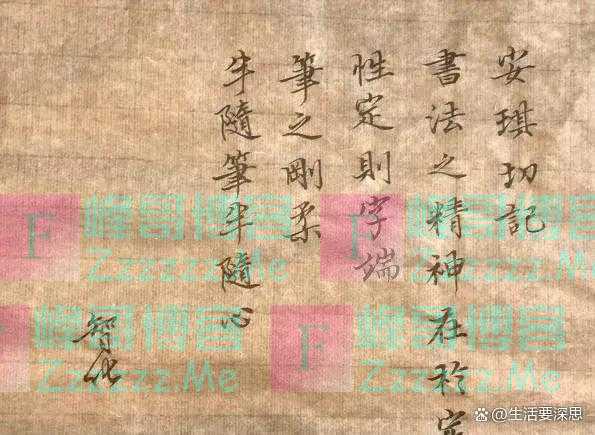 安琪切記
書法之精神在於
性定則字端
筆之剛柔
半隨筆半隨心
智
F
峰哥博客
Zzzzzz.Me
F
峰哥博客
Zzzzzz.Me
峰哥博客
Zzzzzz.Me
F
峰哥博客
Zzzzzz.Me
@生活要深思